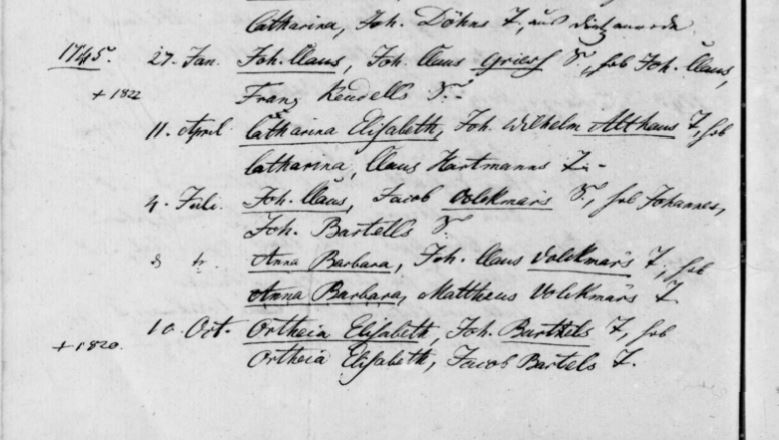 Catharina, Joh. Döhns T., aus
1745. 27. Jan. Joh. Claus, Joh. Claus Griesh S., hob Joh. Claus,
+ 1822 Franz Kendells S.-
11. April Catharina Elisabeth, Joh. Wilhelm Althaus T., hob
Catharina, Claus Hartmanns T.-
4. Juli. Joh. Claus, Jacob Volckmars S., hob Johannes,
Joh. Bartells S.
8 Anna Barbara, Joh. Claus Volckmars T., hob
Anna Barbara, Mattheus Volckmars T.
10. Oct. Ortheia Elisabeth, Joh. Barthels T., hob
+ 1820. Ortheia Elisabeth, Jacob Bartels T.